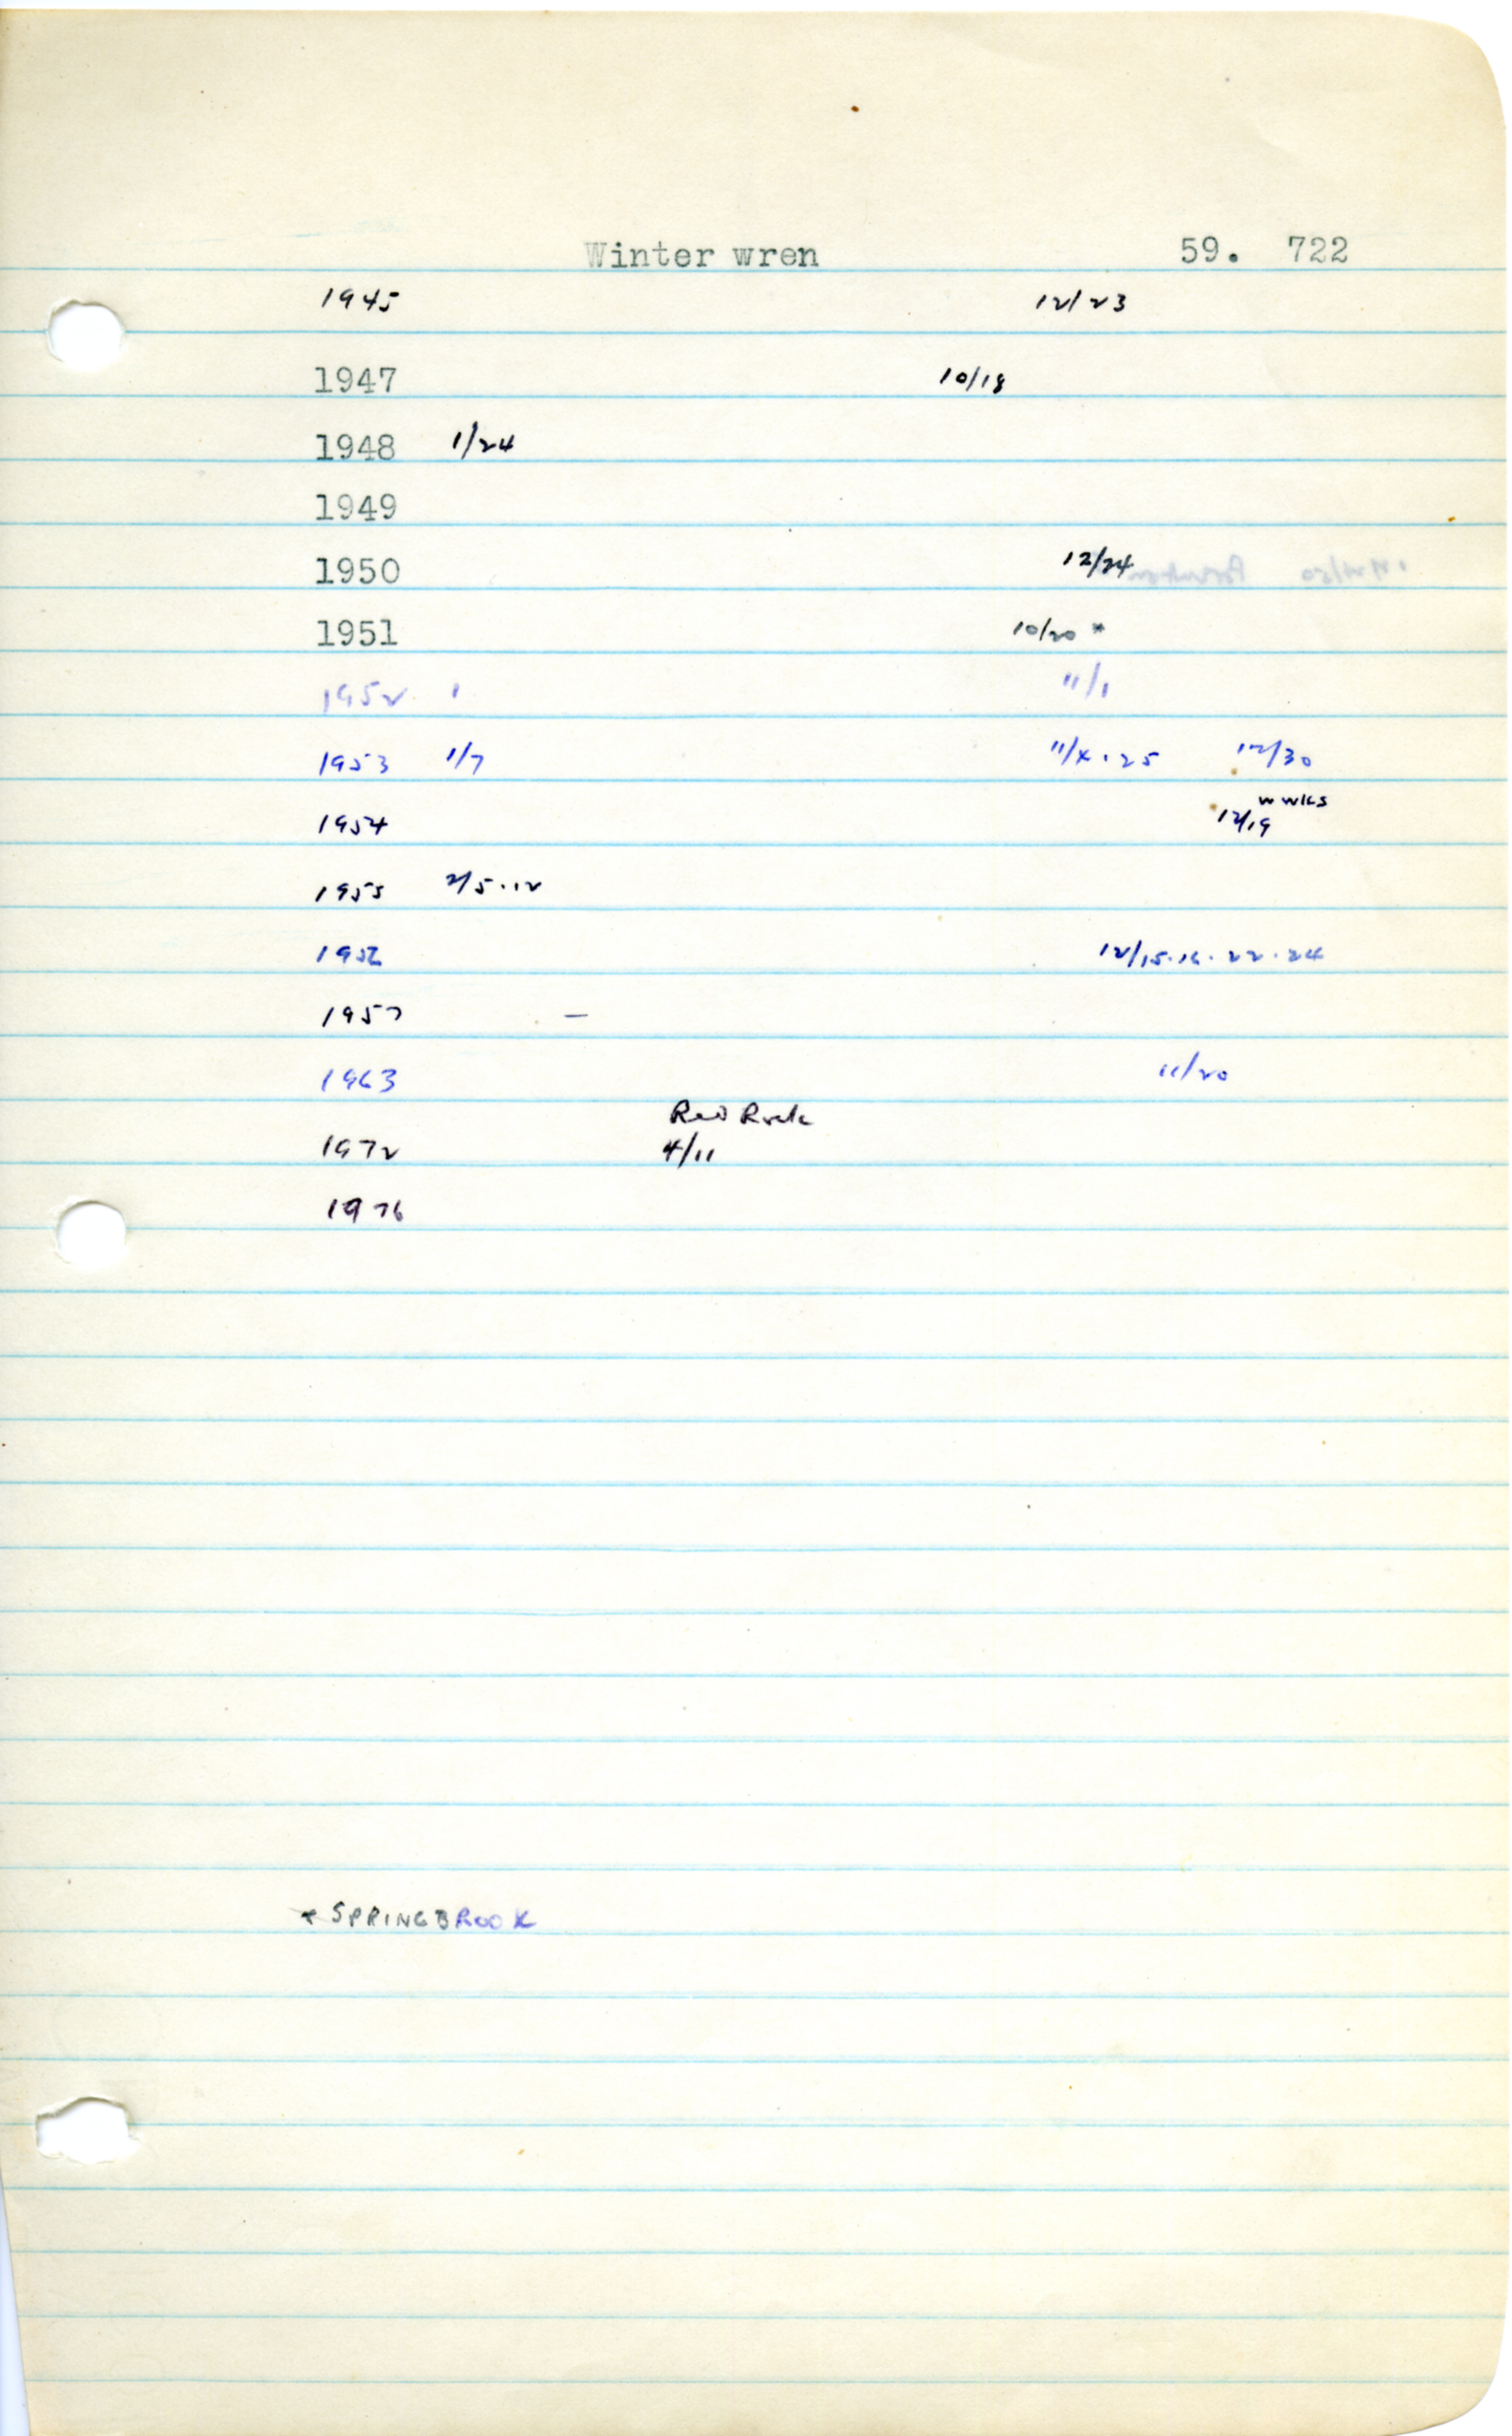 Winter wren 59. 722
1945 12/23
1947 10/18
1948 1/24
1949
1950 12/24
1951 10/20 *
1952 1 11/1
1953 1/7 11/4.25 12/30
W WKS
1954 12/19
1955 2/5.12
1956 12/15.16.22.24
1957 —
1963 11/20
Red Rock
1972 4/11
1976
* SPRINGBROOK